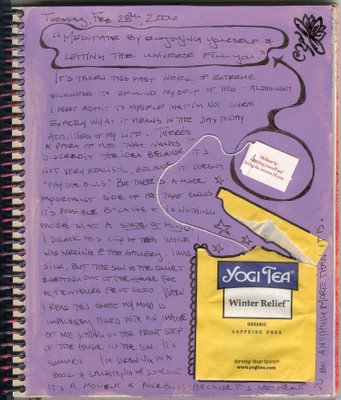 Tuesday, Feb. 28th, 2006
"Meditate by enjoying yourself &
letting the universe fill you."
It's taken this past week of extreme
sickness to remind myself of this. Although
I must admit to myself that I'm not sure
exactly what it means in the day to day
activities of my life. There's
a part of me that wants to
discredit the idea because it's
not very realistic, because it doesn't
"pay the bills." But there's a more
important side of me that knows
it's possible because it is nothing
more than a state of mind.
I drank this cup of tea while
was working @ the gallery. I was
sick, but the sun & the quiet
& getting out of the house for
a few hours felt good. When
I read this quote my mind
immediately filled with an image
of me sitting on the front step
of the house in the sun. It's
summer. I'm drawing in a
book & laughing at someone
It's a moment of because it's not meant
to be anything more than it is.
Meditate by
enjoying yourself and
letting the universe fill you.
YOGI TEA
Winter Relief
ORGANIC
CAFFEINE FREE
Serving Your Spirit
www.yogitea.com